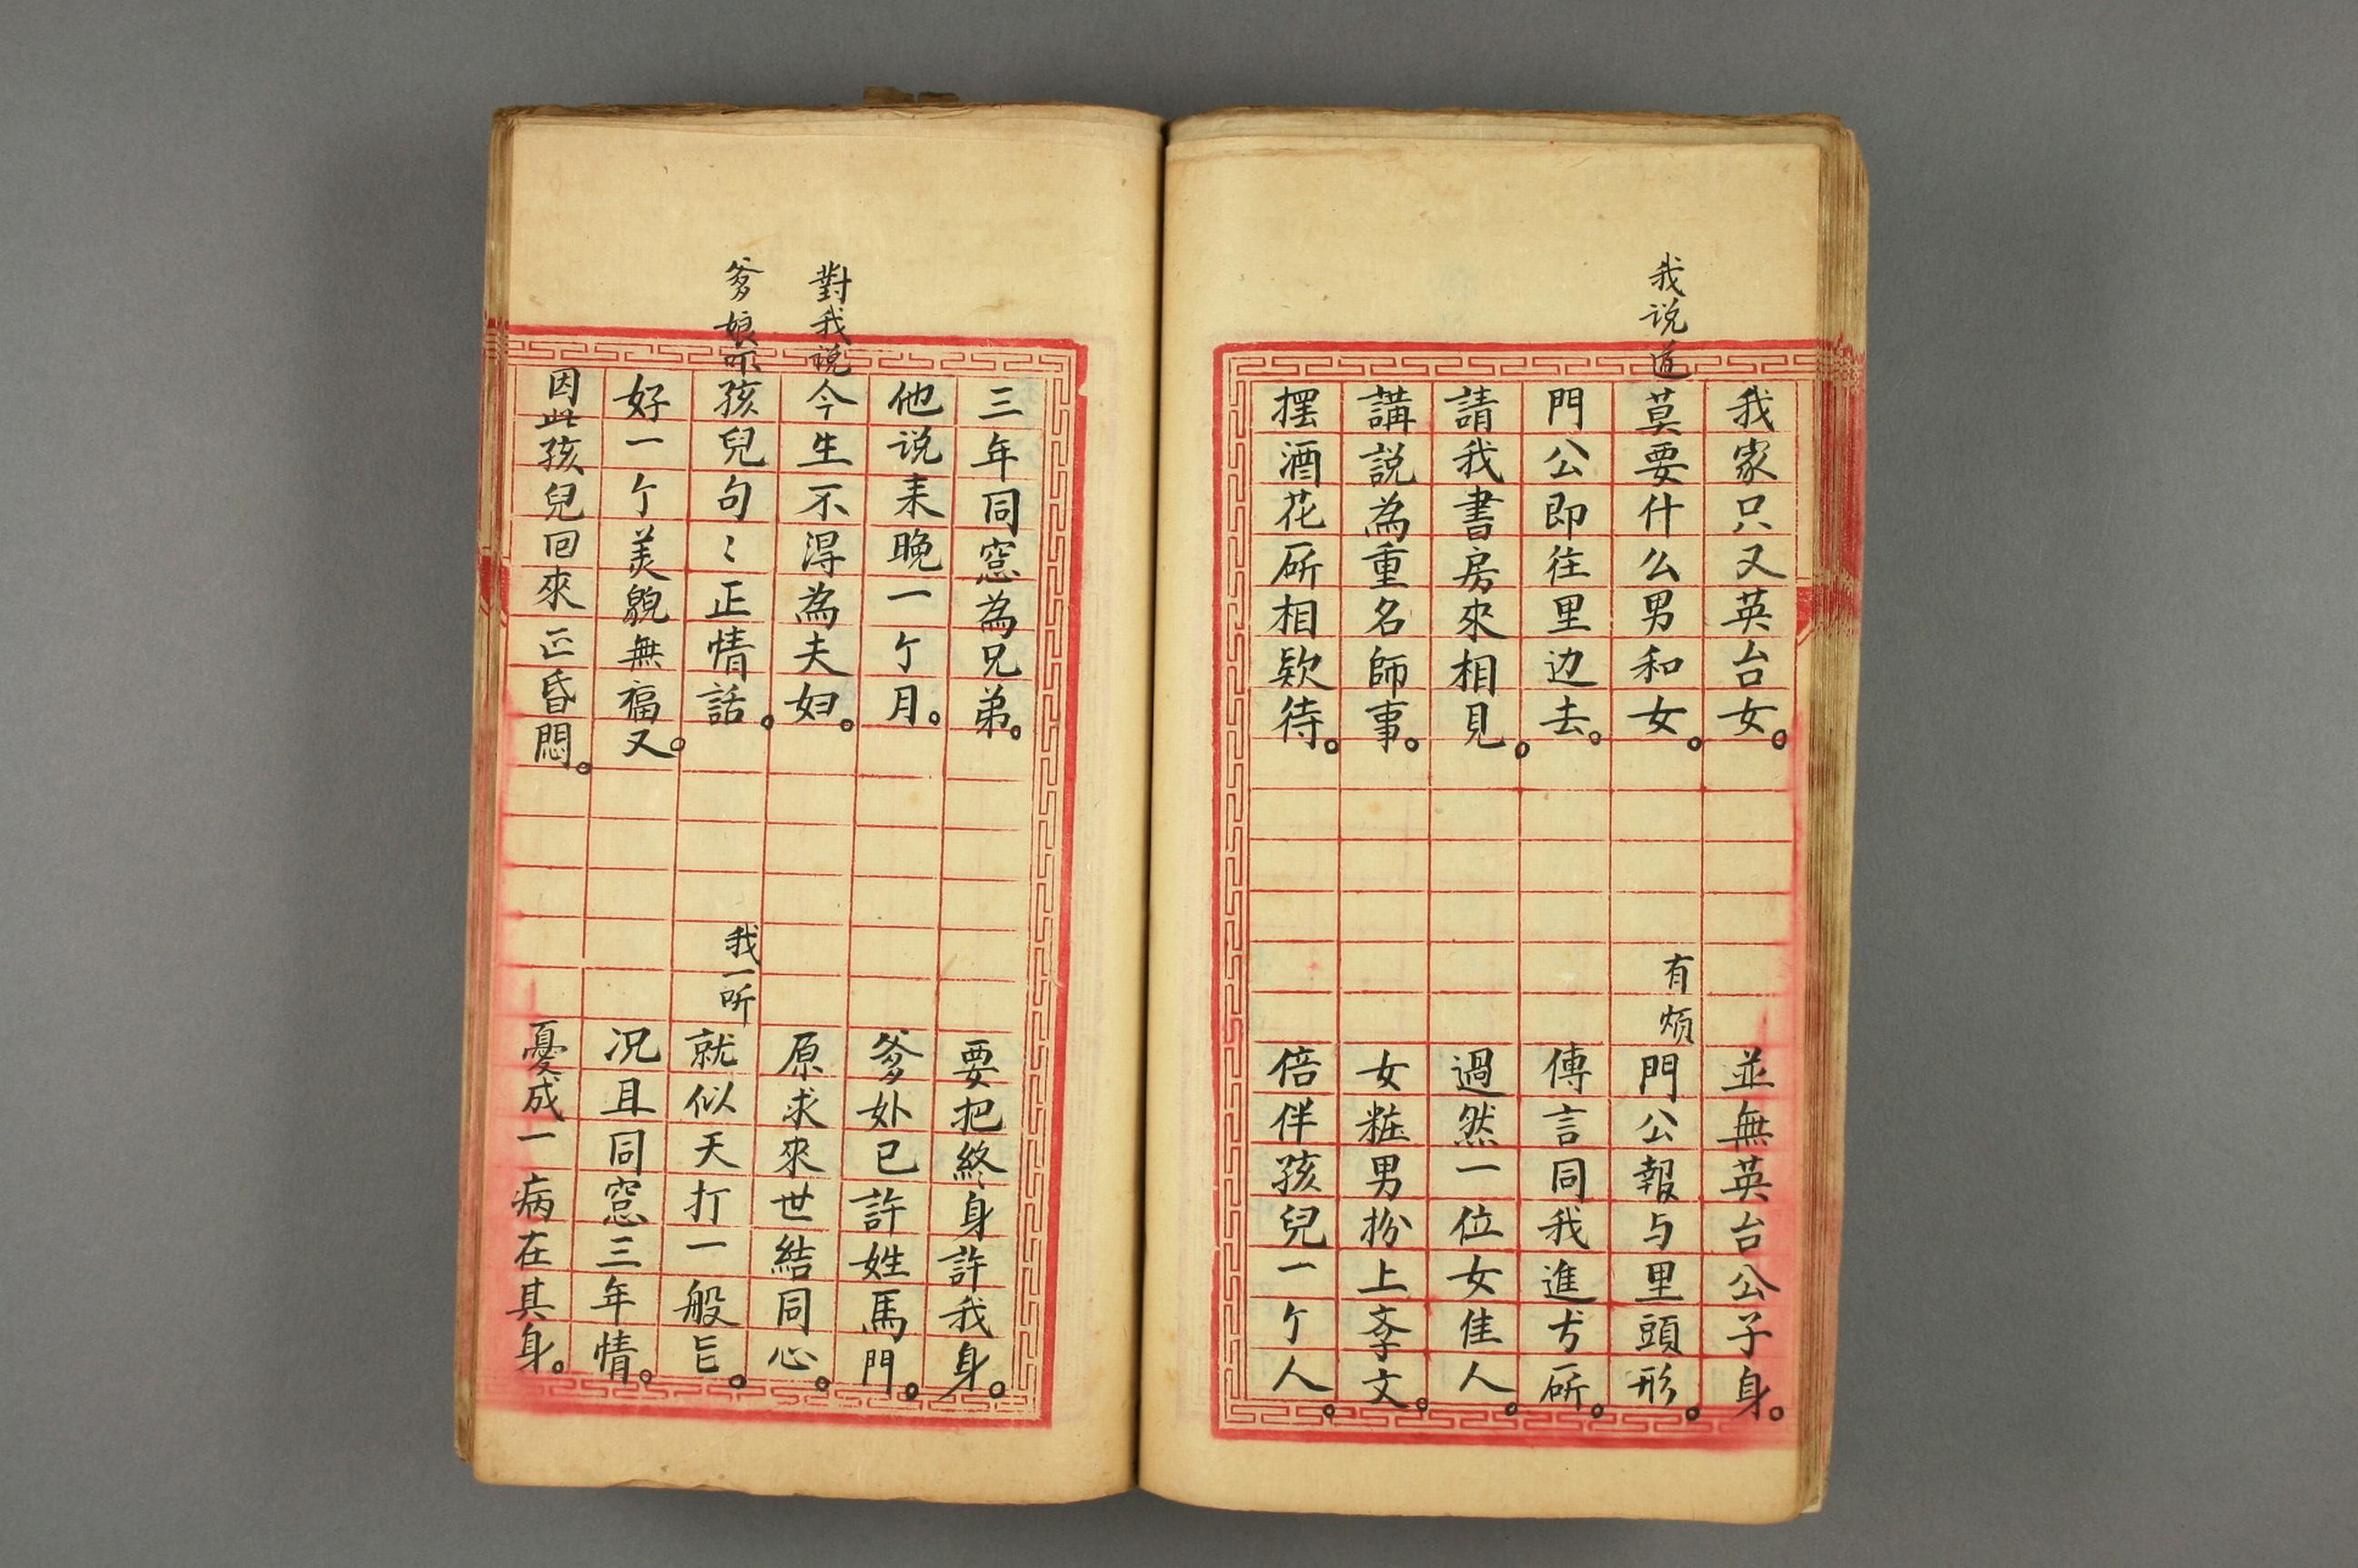 我家只又英台女。並無英台公子身。
我说道莫要什么男和女。有煩門公報与里頭形。
門公即往里边去。傳言同我進㕔。
請我書房來相見。過然一位女佳人。
講説為重名師事。女粧男扮上孝文。
摆酒花㕔相欵待。倍伴孩兒一亇人。
三年同窓為兄弟。要把終身許我身。
他说来晚一亇月。爹𡛷已許姓馬門。
對我说今生不淂為夫妇。原求來世結同心。
爹娘吓孩兒句〻正情話。我一听就似天打一般㠯。
好一亇美貌無福又。况且同窓三年情。
因此孩兒回來正昏悶。憂成一病在其身。